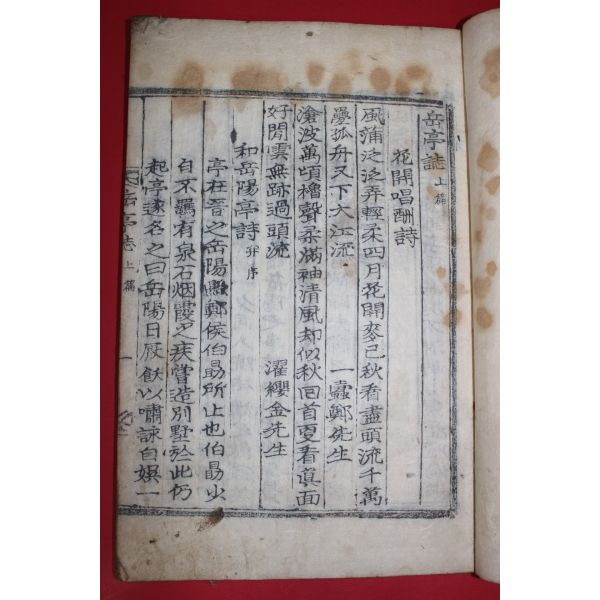 岳亭誌 上篇
花開唱酬詩
風蒲泛泛弄輕柔四月花開麥已秋看盡頭流千萬
疊孤舟又下大江流 一蠹鄭先生
滄波萬頃櫓聲柔滿袖清風却似秋回首更看眞面
好閒雲無跡過頭流 濯纓金先生
和岳陽亭詩 并序
亭在晉之岳陽縣鄭侯伯勗所止也伯勗少
自不羈有泉石烟霞之疾嘗造別墅於此仍
起亭遂名之曰岳陽日厭飫以嘯詠自娛一
岳亭誌 上篇 一